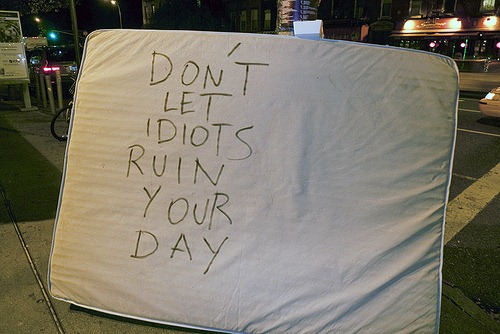 DON'T
LET
IDIOTS
RUIN
YOUR
DAY